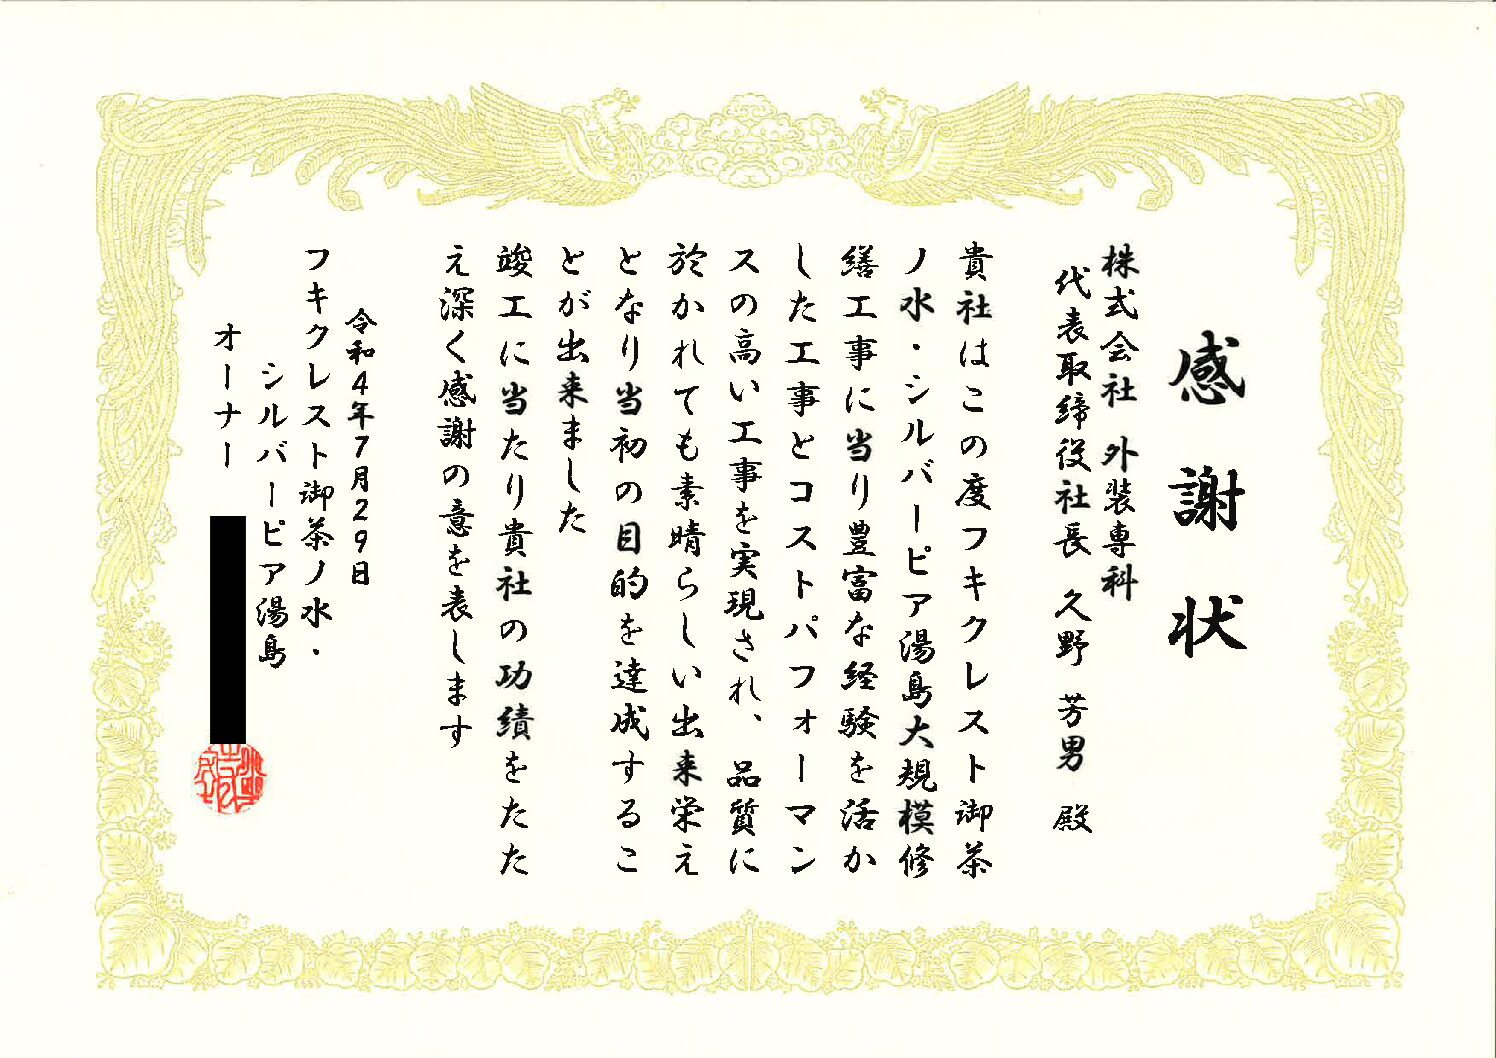 感謝状
株式会社 外装専科
代表取締役社長 久野 芳男 殿
貴社はこの度フキクレスト御茶
ノ水・シルバーピア湯島大規模修
繕工事に当り豊富な経験を活か
した工事とコストパフォーマン
スの高い工事を実現され、品質に
於かれても素晴らしい出来栄え
となり当初の目的を達成するこ
とが出来ました
竣工に当たり貴社の功績をたた
え深く感謝の意を表します
令和4年7月29日
フキクレスト御茶ノ水・
シルバーピア湯島
オーナー